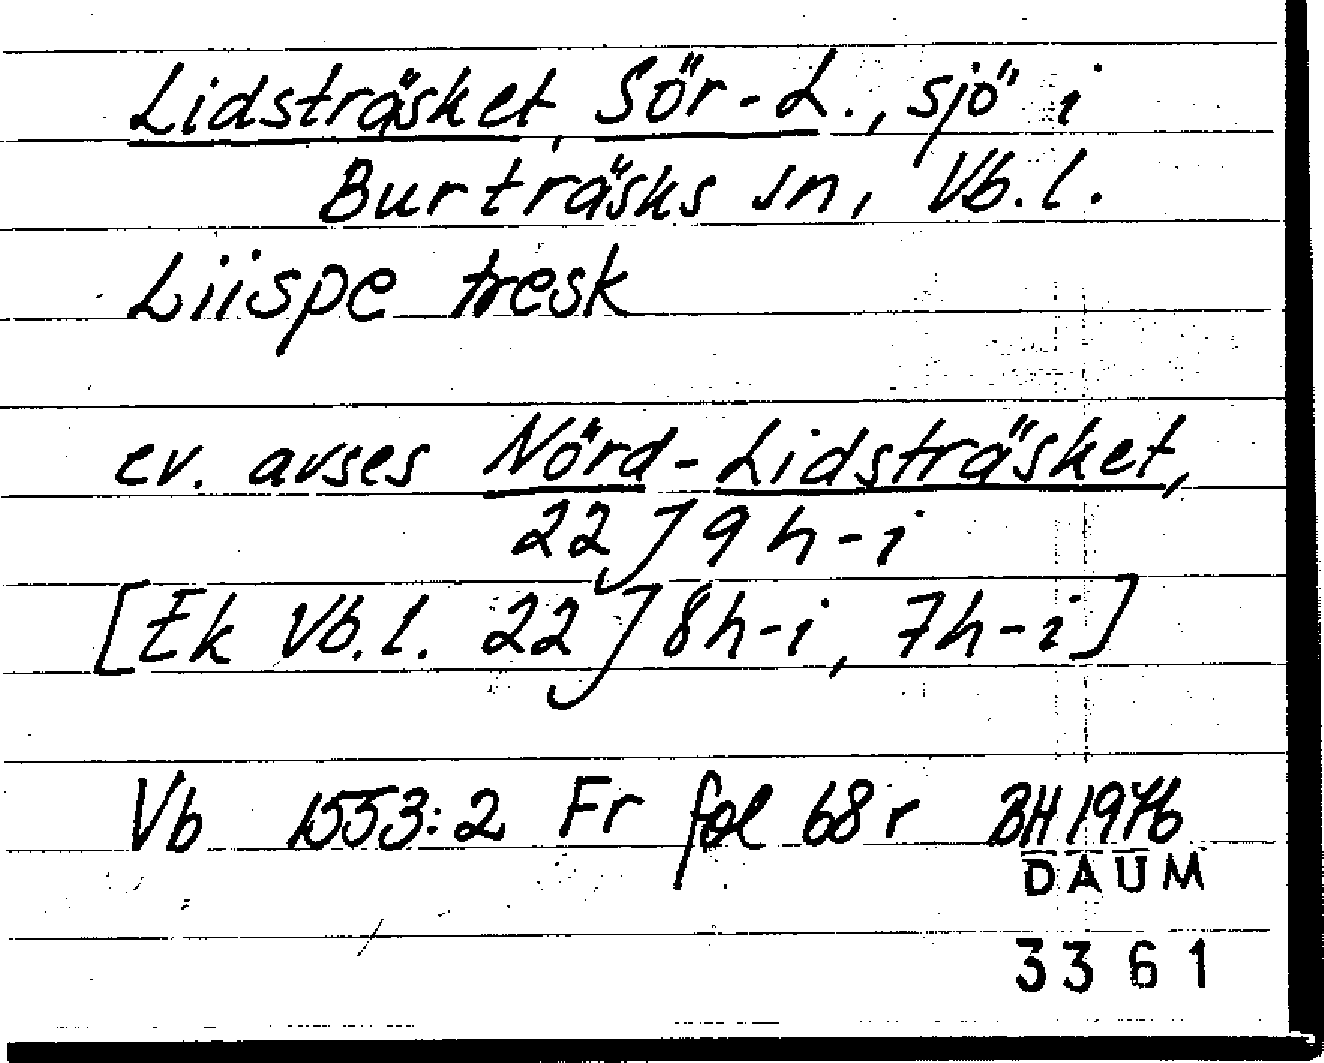 Lidsträsket, Sör-L., sjö i
Burträsks sn, Vb.l.
Liispe tresk
ev. avses Nörd-Lidsträsket,
22J 9h-i
[Ek Vb.l. 22J 8h-i, 7h-i]
Vb 1553:2 Fr fol 68r BH 1976
DAUM
3361